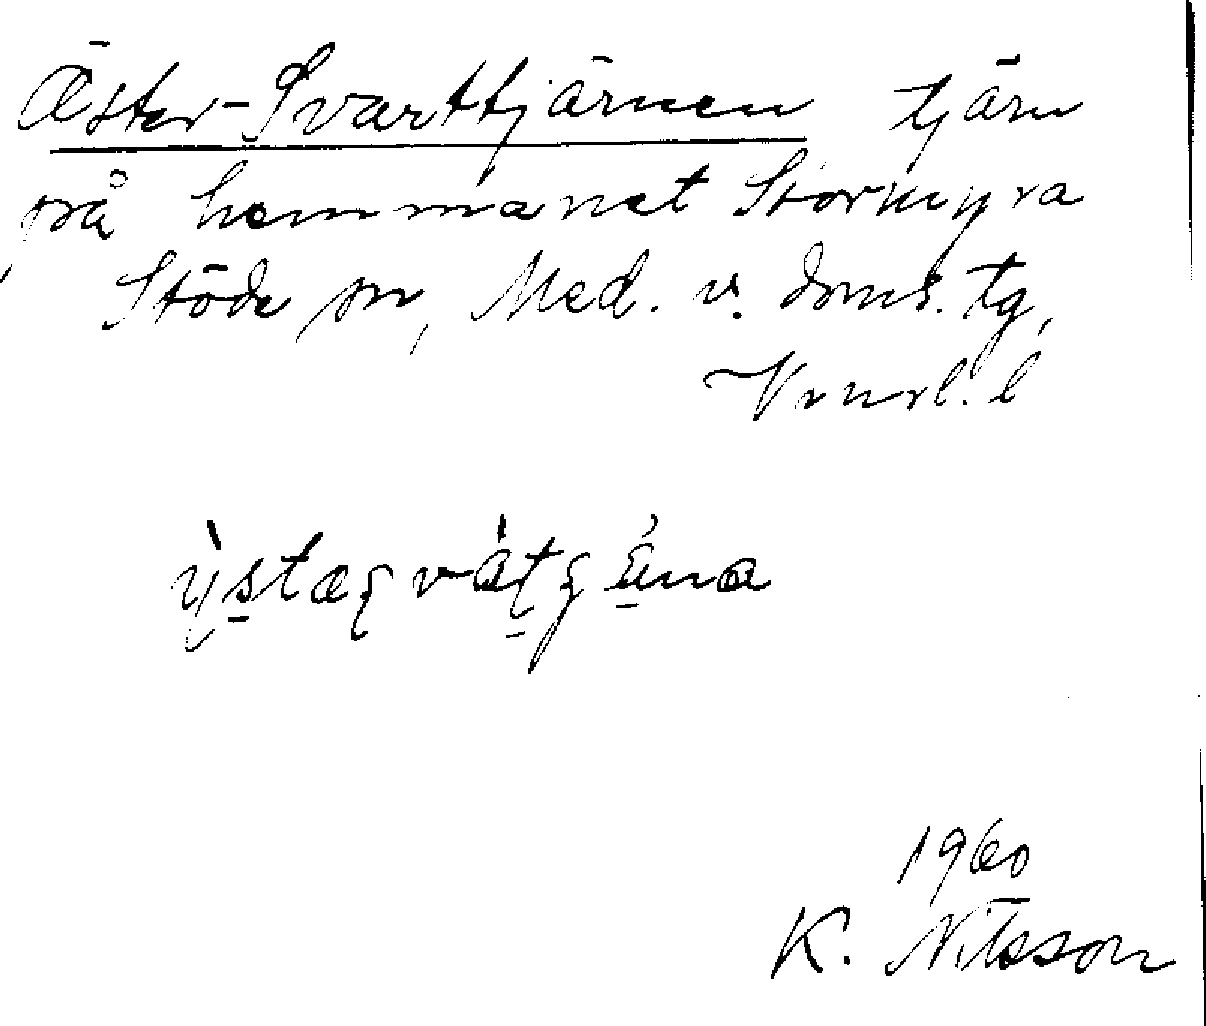 Öster-Svarttjärnen tjärn
på hemmanet Stormyra
Stöde sn, Med. v. doms. tg,
Vnorl. l
1960
K. Nilsson